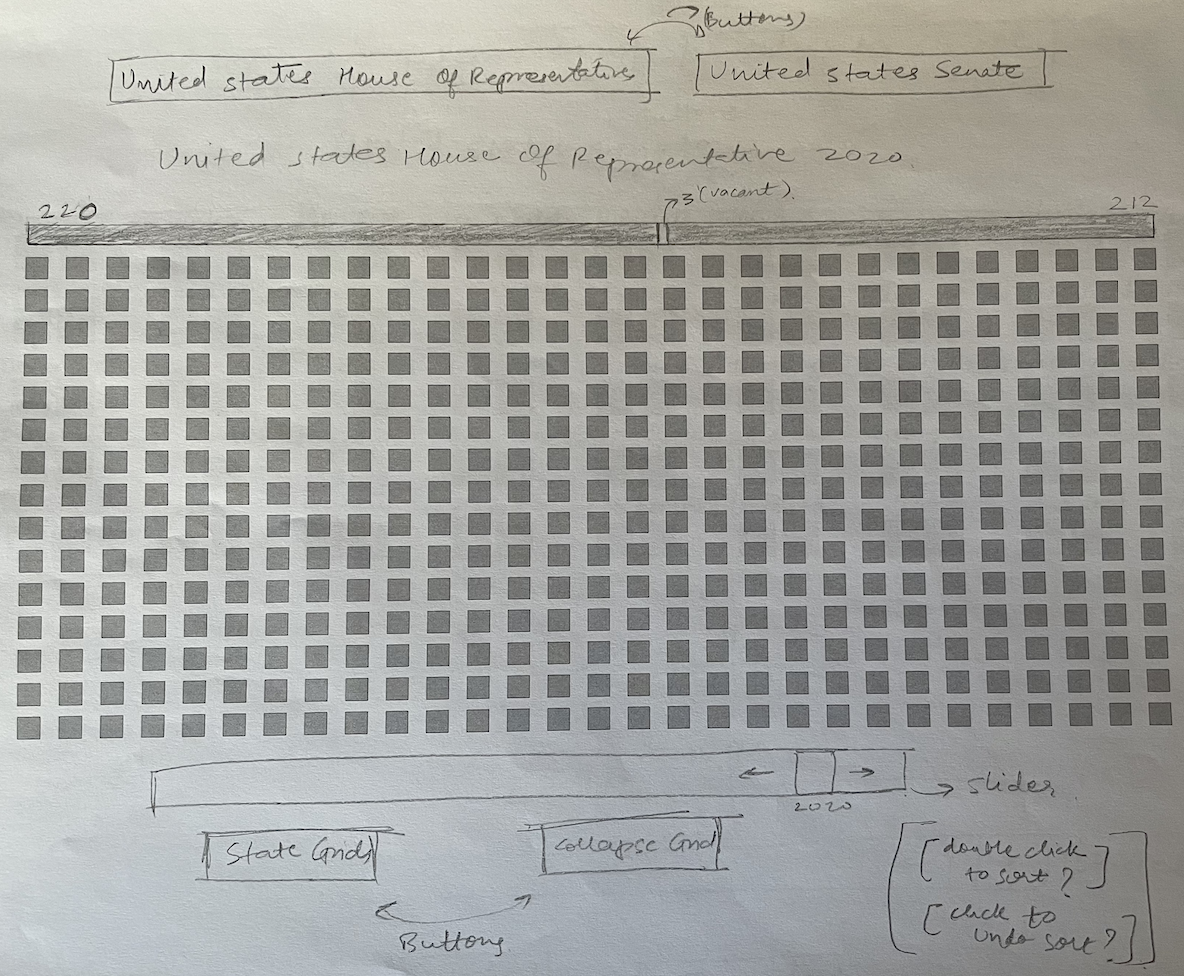 (Buttons)
United states House of Representative
United states Senate
United states House of Representative 2020.
220
3 (vacant).
212
← →
slider
2020
State Grids
collapse Grid
Buttons
[double click
to sort?]
[click to
undo sort?]